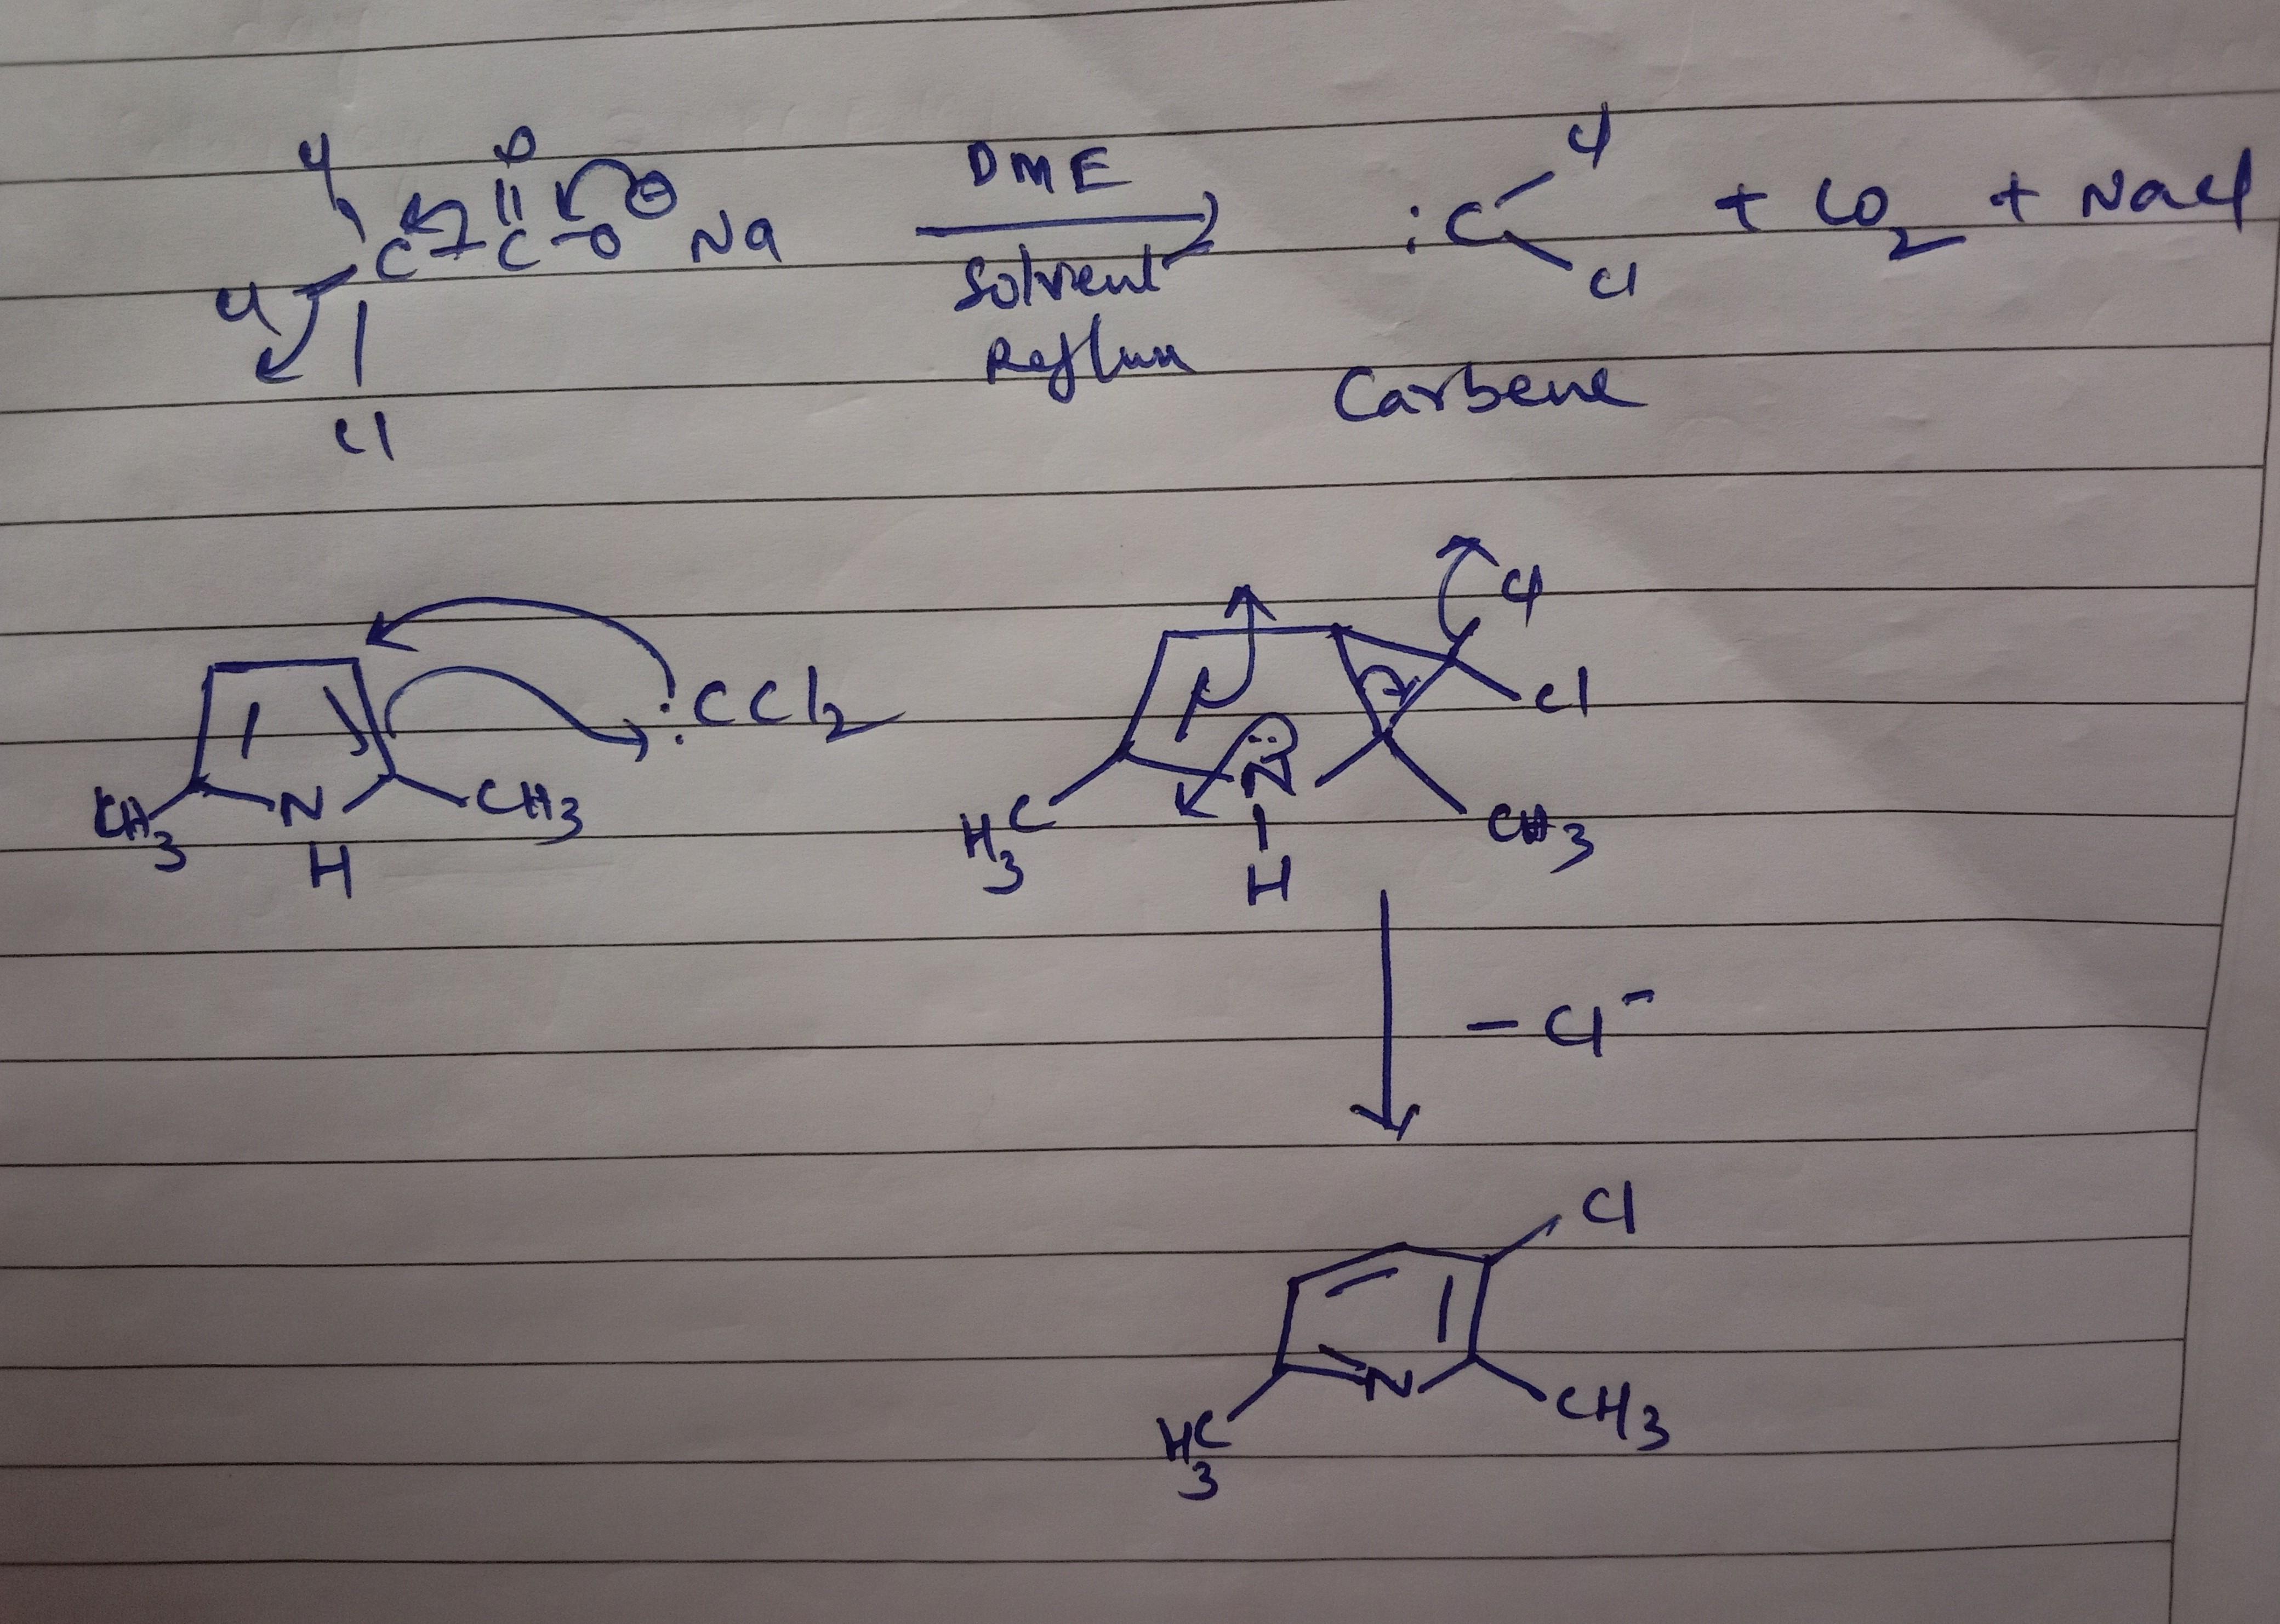 Cl O
Cl C - C - O ⊖ Na
Cl
DME
Solvent
Reflux
:C Cl Cl + CO2 + NaCl
Carbene
CH3 N H CH3 :CCl2
Cl Cl
H3C N H CH3
- Cl⁻
Cl
H3C N CH3